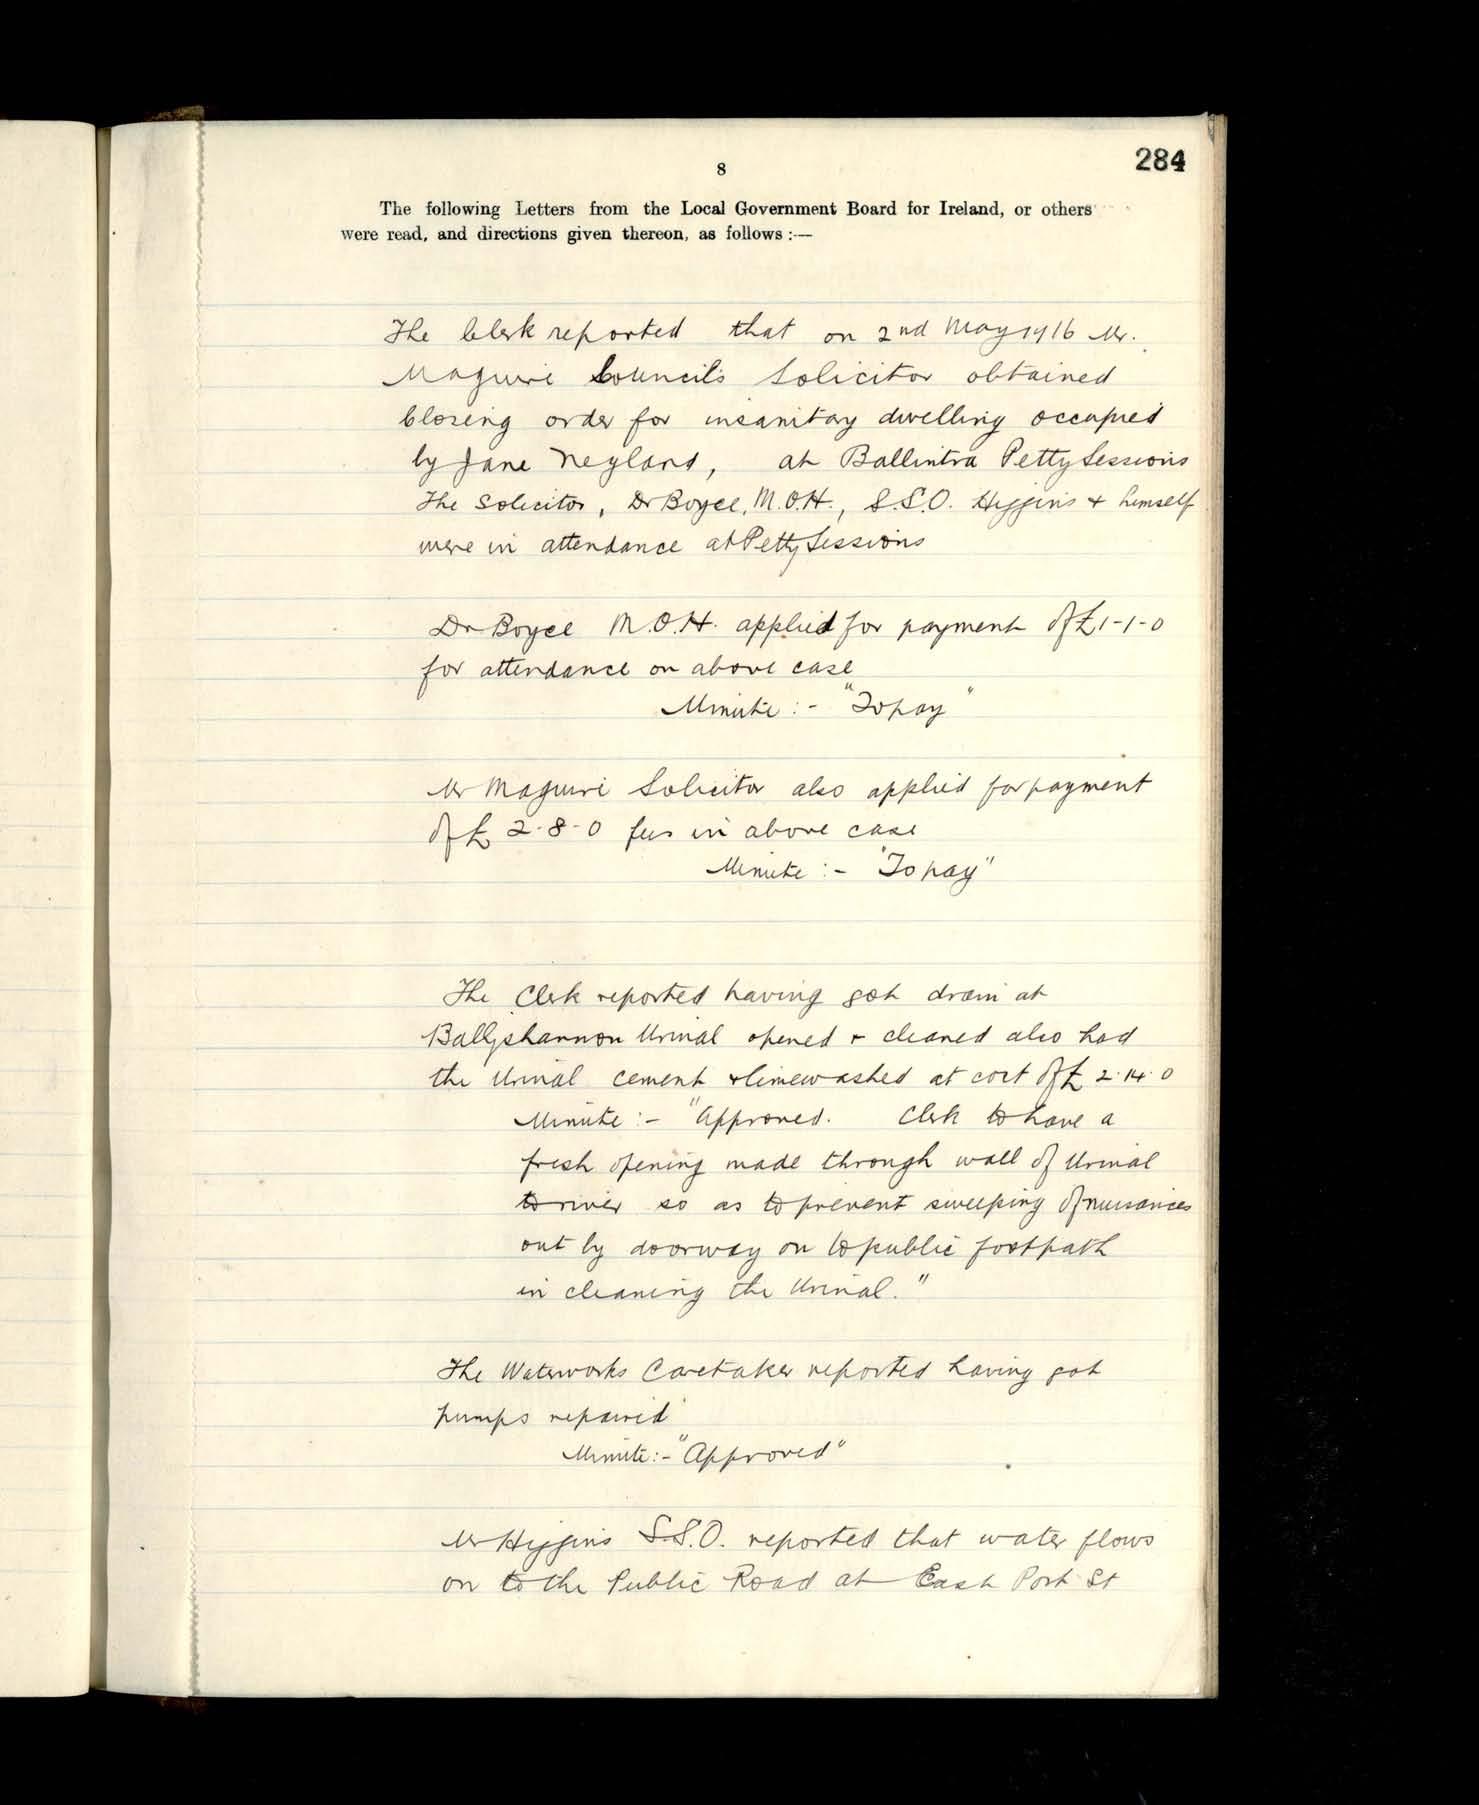 284
8
The following Letters from the Local Government Board for Ireland, or others
were read, and directions given thereon, as follows :—
The Clerk reported that on 2nd May 1916 Mr.
Maguire Council's Solicitor obtained
Closing order for insanitary dwelling occupied
by Jane Neyland, at Ballintra Petty Sessions
The Solicitor, Dr Boyce, M.O.H., S.S.O. Higgins & himself
were in attendance at Petty Sessions
Dr Boyce M.O.H. applied for payment of £1-1-0
for attendance on above case
Minute :- "To pay"
Mr Maguire Solicitor also applied for payment
of £ 2-8-0 fees in above case
Minute :- "To pay"
The Clerk reported having got drain at
Ballyshannon Urinal opened & cleaned also had
the Urinal cement & limewashed at cost of £ 2.14.0
Minute :- "Approved. Clerk to have a
fresh opening made through wall of Urinal
to river so as to prevent sweeping of nuisances
out by doorway on to public footpath
in cleaning the Urinal."
The Waterworks Caretaker reported having got
pumps repaired
Minute :- "Approved"
Mr Higgins S.S.O. reported that water flows
on to the Public Road at East Port St